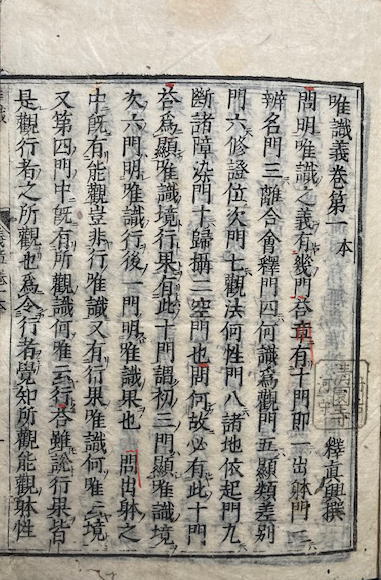 唯識義卷第一本
釋真興撰
問明唯識之義有幾門荅章有十門即一出躰門二
辨名門三離合會釋門四何識爲觀門五顯類差別
門六修證位次門七觀法何性門八諸地依起門九
斷諸障染門十歸攝二空門也問何故必有此十門
荅爲顯唯識境行果有此十門謂初三門顯唯識境
次六門明唯識行後一門明唯識果也 問出躰之
中既有能觀豈非行唯識又有行果唯識何唯云境
又第四門中既有所觀識何唯云行荅雖說行果皆
是觀行者之所觀也爲令行者覺知所觀能觀躰性